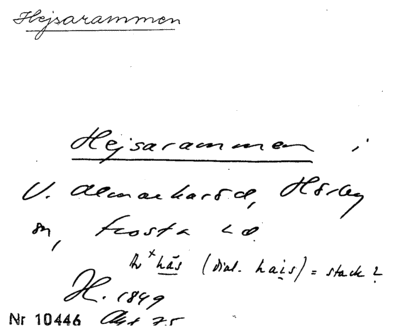 Hejsarammen
Hejsarammen i
V. Almanharöd, Hörby
sn, Frosta hd.
*hås (dial. hais) = stack?
H. 1849
Nr 10446